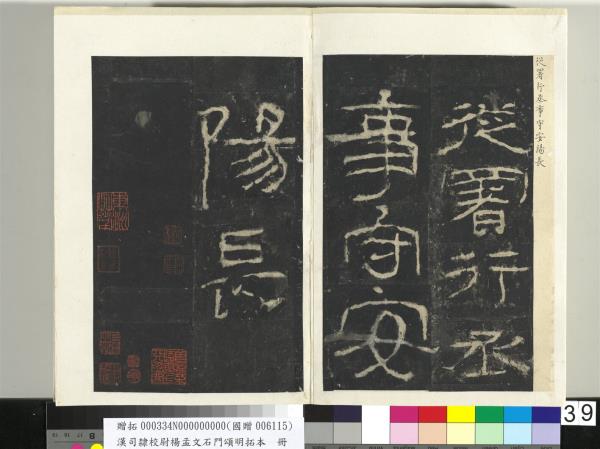 從署行丞事守安陽長
從署行丞
事守安
陽長
贈拓 000334N000000000(國贈 006115)
漢司隸校尉楊孟文石門頌明拓本 冊
39
8